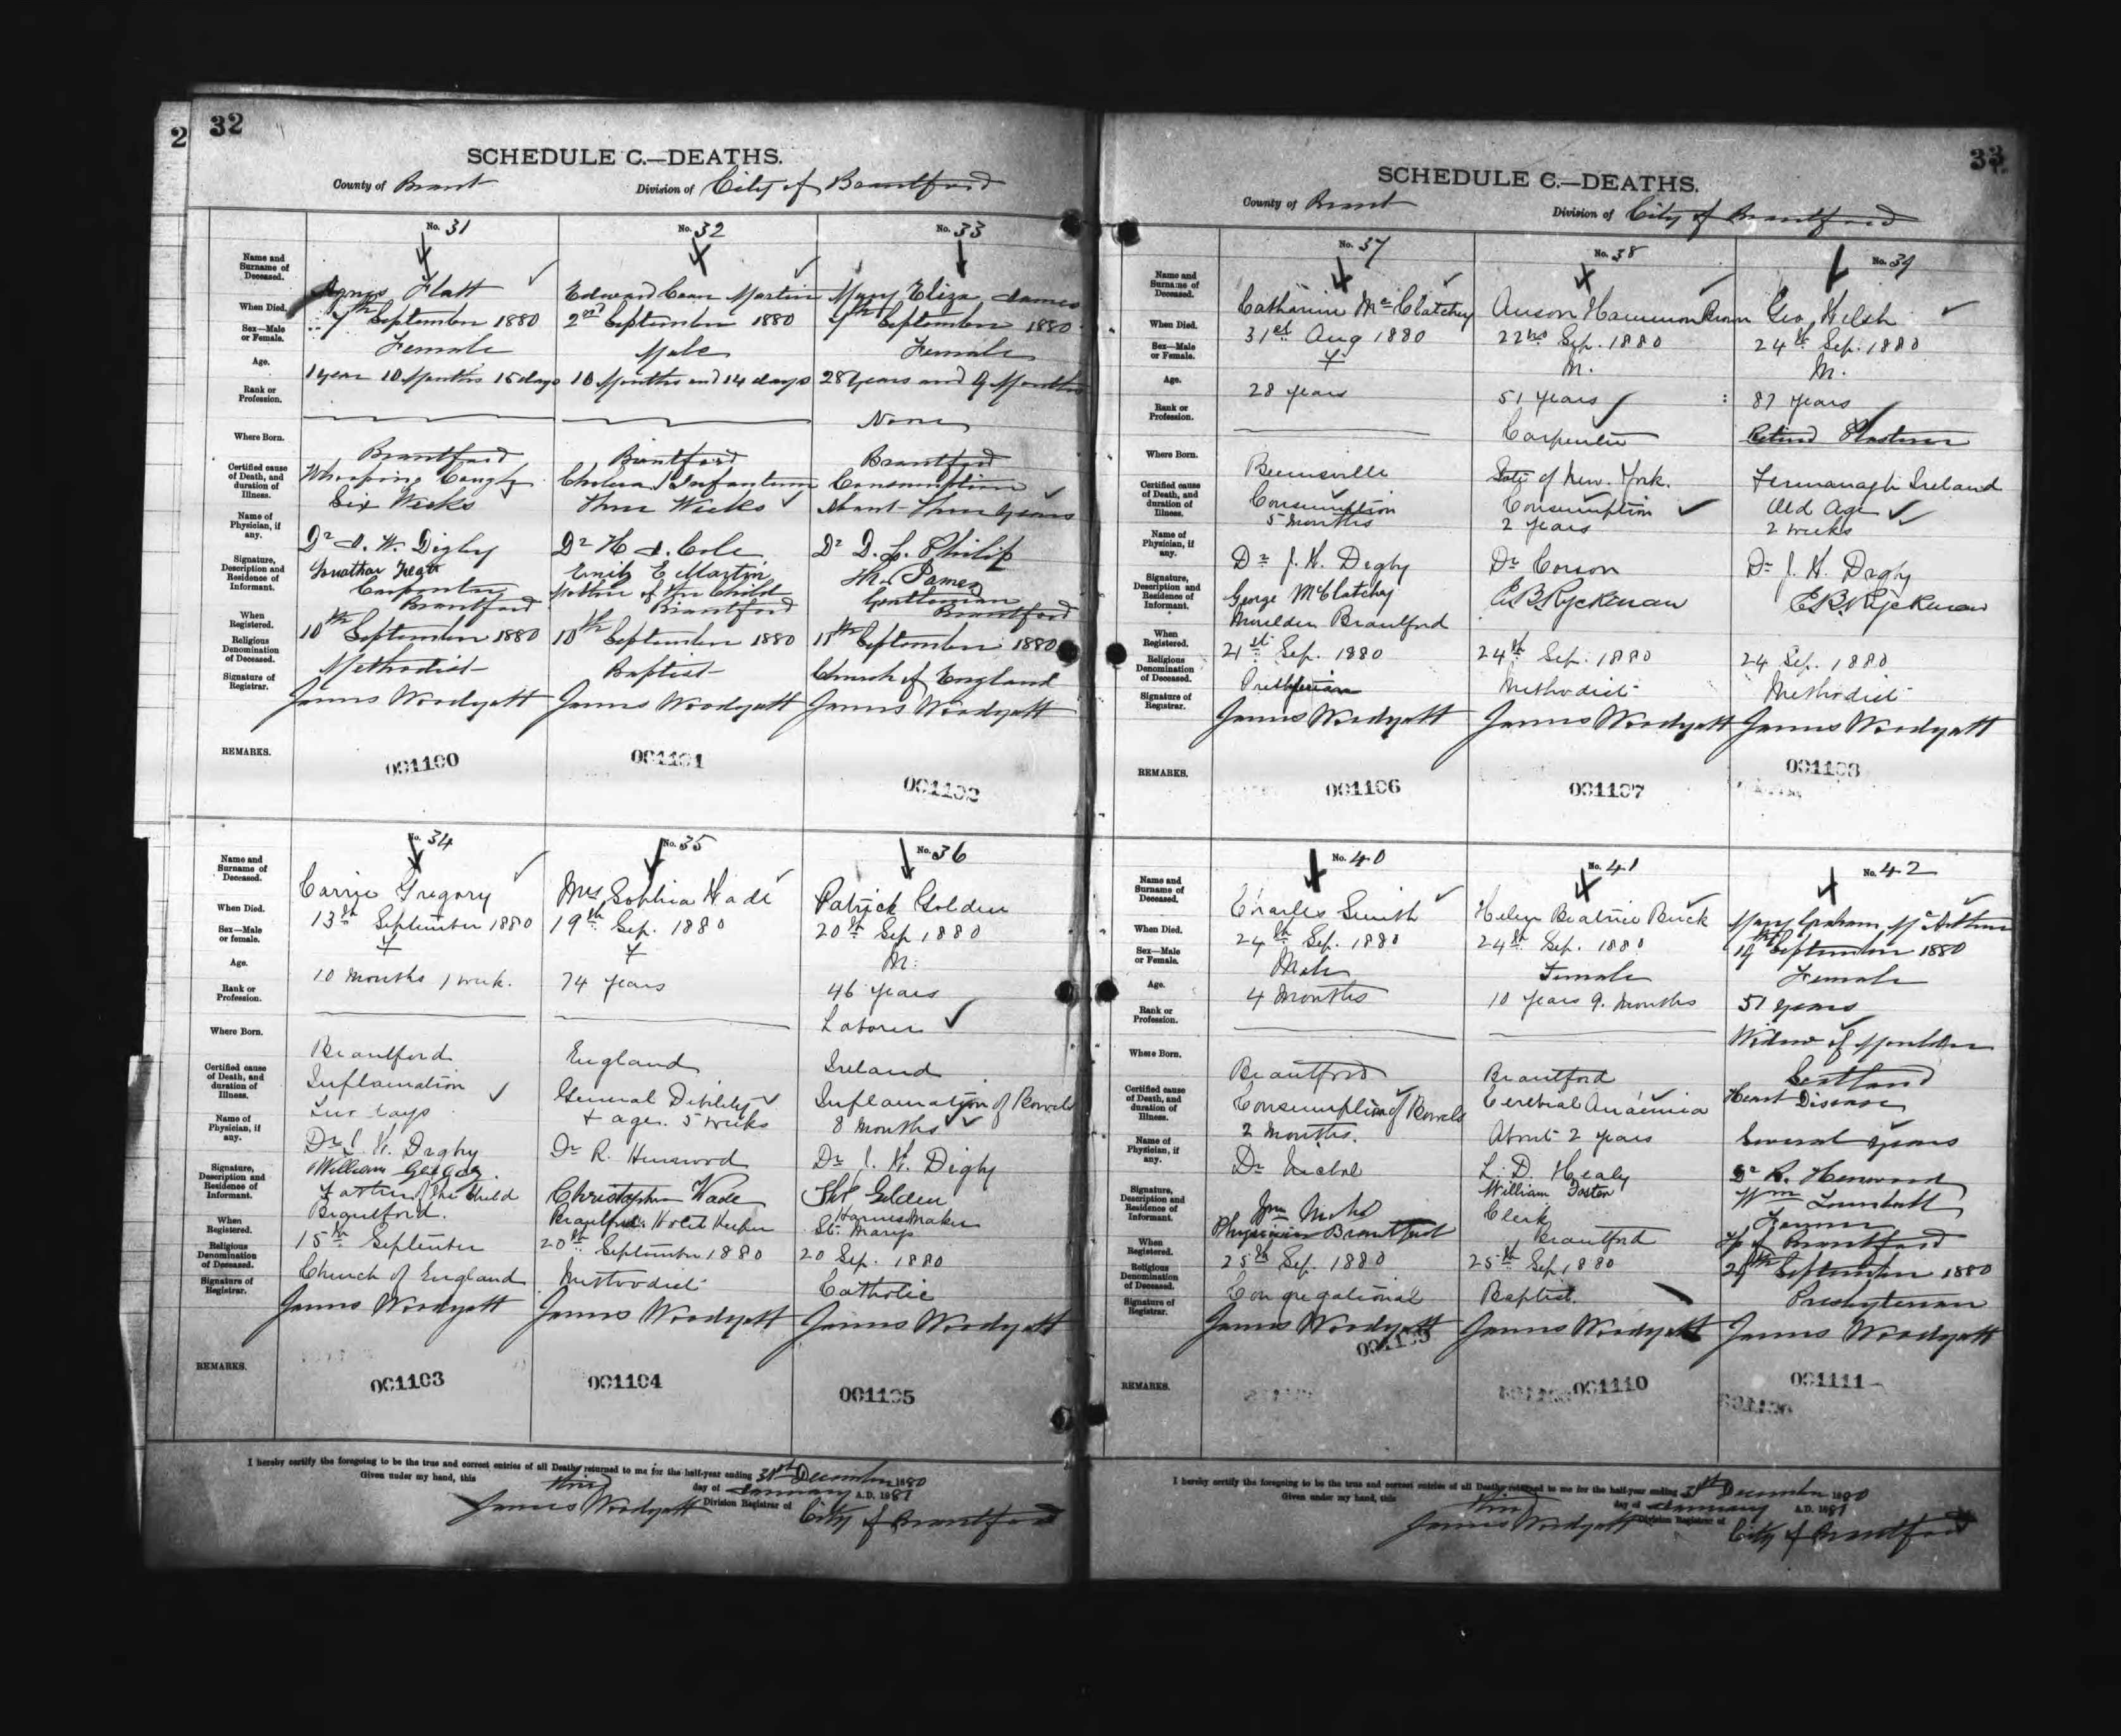 2
32
SCHEDULE C.—DEATHS.
County of Brant Division of City of Brantford
No. 31 No. 32 No. 33
Name and Surname of Deceased. Agnes Flatt Edward Martin Mary Eliza James
When Died. 7th September 1880 2nd September 1880 7th September 1880
Sex—Male or Female. Female Male Female
Age. 1 year 10 Months 15 days 10 Months and 14 days 28 years and 9 Months
Rank or Profession. None
Where Born. Brantford Brantford Brantford
Certified cause of Death, and duration of Illness. Whooping Cough Cholera Infantum Consumption
Six Weeks Three Weeks About Three years
Name of Physician, if any. Dr J. W. Digby Dr H J. Cole Dr D. L. Philip
Signature, Description and Residence of Informant. Jonathan Emily E Martin James
Carpenter Mother of the Child Gentleman
Brantford Brantford Brantford
When Registered. 10th September 1880 10th September 1880 11th September 1880
Religious Denomination of Deceased. Methodist Baptist Church of England
Signature of Registrar. James Woodyatt James Woodyatt James Woodyatt
REMARKS. 001100 001101 001102
No. 34 No. 35 No. 36
Name and Surname of Deceased. Carrie Gregory Mrs Sophia Wade Patrick Golden
When Died. 13th September 1880 19th Sep. 1880 20th Sep 1880
Sex—Male or female. F F M.
Age. 10 Months 1 week. 74 years 46 years
Rank or Profession. Laborer
Where Born. Brantford England Ireland
Certified cause of Death, and duration of Illness. Inflamation General Debility Inflamation of Bowels
Two days + age. 5 weeks 8 Months
Name of Physician, if any. Dr J. W. Digby Dr R. Henwood Dr J. W. Digby
Signature, Description and Residence of Informant. William Christopher Wade Golden
Father of the Child Brantford Hotel Keeper Harness Maker
Brantford. St. Marys
When Registered. 15th September 20th September 1880 20 Sep. 1880
Religious Denomination of Deceased. Church of England Methodist Catholic
Signature of Registrar. James Woodyatt James Woodyatt James Woodyatt
REMARKS. 001103 001104 001105
I hereby certify the foregoing to be the true and correct entries of all Deaths returned to me for the half-year ending 31st December 1880
Given under my hand, this third day of January A.D. 1881
James Woodyatt Division Registrar of City of Brantford
33
SCHEDULE C.—DEATHS.
County of Brant Division of City of Brantford
No. 37 No. 38 No. 39
Name and Surname of Deceased. Catharine McClatchey Anson Hammon Brown Geo Welsh
When Died. 31st Aug 1880 22nd Sep. 1880 24th Sep. 1880
Sex—Male or Female. F M. M.
Age. 28 years 51 years 87 years
Rank or Profession. Carpenter Retired Plasterer
Where Born. Beemsville State of New. York. Fermanagh Ireland
Certified cause of Death, and duration of Illness. Consumption Consumption Old Age
5 Months 2 years 2 weeks
Name of Physician, if any. Dr J. W. Digby Dr Corson Dr J. W. Digby
Signature, Description and Residence of Informant. George McClatchey E B Ryckman E B Ryckman
Moulder Brantford
When Registered. 21st Sep. 1880 24th Sep. 1880 24 Sep. 1880
Religious Denomination of Deceased. Presbyterian Methodist Methodist
Signature of Registrar. James Woodyatt James Woodyatt James Woodyatt
REMARKS. 001106 001107 001108
No. 40 No. 41 No. 42
Name and Surname of Deceased. Charles Smith Helen Beatrice Buck Mary Graham McArthur
When Died. 24th Sep. 1880 24th Sep. 1880 September 1880
Sex—Male or Female. Male Female Female
Age. 4 Months 10 years 9. Months 51 years
Rank or Profession. Widow of Moulder
Where Born. Brantford Brantford Scotland
Certified cause of Death, and duration of Illness. Consumption of Bowels Cerebral Anaemia Heart Disease
2 Months. About 2 years Several years
Name of Physician, if any. Dr Nichol L. D. Healy Dr R. Henwood
Signature, Description and Residence of Informant. William Foster Wm Turnbull
Physician Brantford Clerk Farmer
Brantford Tp of Brantford
When Registered. 25th Sep. 1880 25th Sep 1880 September 1880
Religious Denomination of Deceased. Congregational Baptist. Presbyterian
Signature of Registrar. James Woodyatt James Woodyatt James Woodyatt
REMARKS. 001110 001111
I hereby certify the foregoing to be the true and correct entries of all Deaths returned to me for the half-year ending 31st December 1880
Given under my hand, this third day of January A.D. 1881
James Woodyatt Division Registrar of City of Brantford